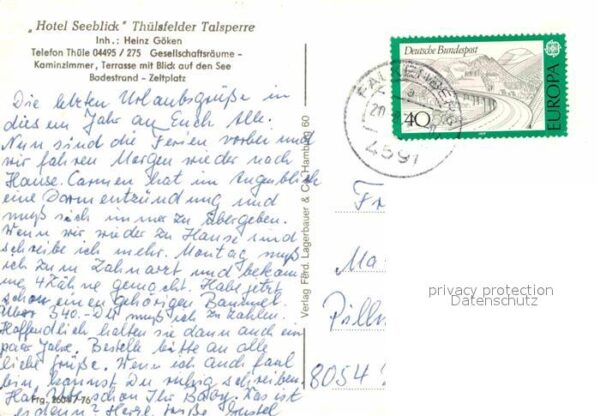 „Hotel Seeblick" Thülsfelder Talsperre
Inh.: Heinz Göken
Telefon Thüle 04495 / 275 Gesellschaftsräume -
Kaminzimmer, Terrasse mit Blick auf den See
Badestrand - Zeltplatz
Die letzten Urlaubsgrüße in
diesem Jahr an Euch Alle.
Nun sind die Ferien vorbei und
wir fahren Morgen wieder nach
Hause. Carmen hat im Augenblick
eine Darmentzündung und
muß sich immer zu Übergeben.
Wenn wir wieder zu Hause sind
schreibe ich mehr. Montag muß
ich zum Zahnarzt und bekam
4 Zähne gemacht. Habe jetzt
schon einen gehörigen Bammel.
Über 340.- DM muß ich zu zahlen.
Hoffendlich halten sie dann auch ein
paar Jahre. Bestelle bitte an alle
liebe Grüße. Wenn ich auch faul
bin, kannst Du ruhig schreiben.
Hat schon Ihr Baby. Was ist
es denn? Herzl. Grüße
Frg. 2604/76
Verlag Ferd. Lagerbauer & Co., Hamburg 60
Deutsche Bundespost
40
EUROPA
20
4591
Fr
Ma
Püllr
8054
privacy protection
Datenschutz